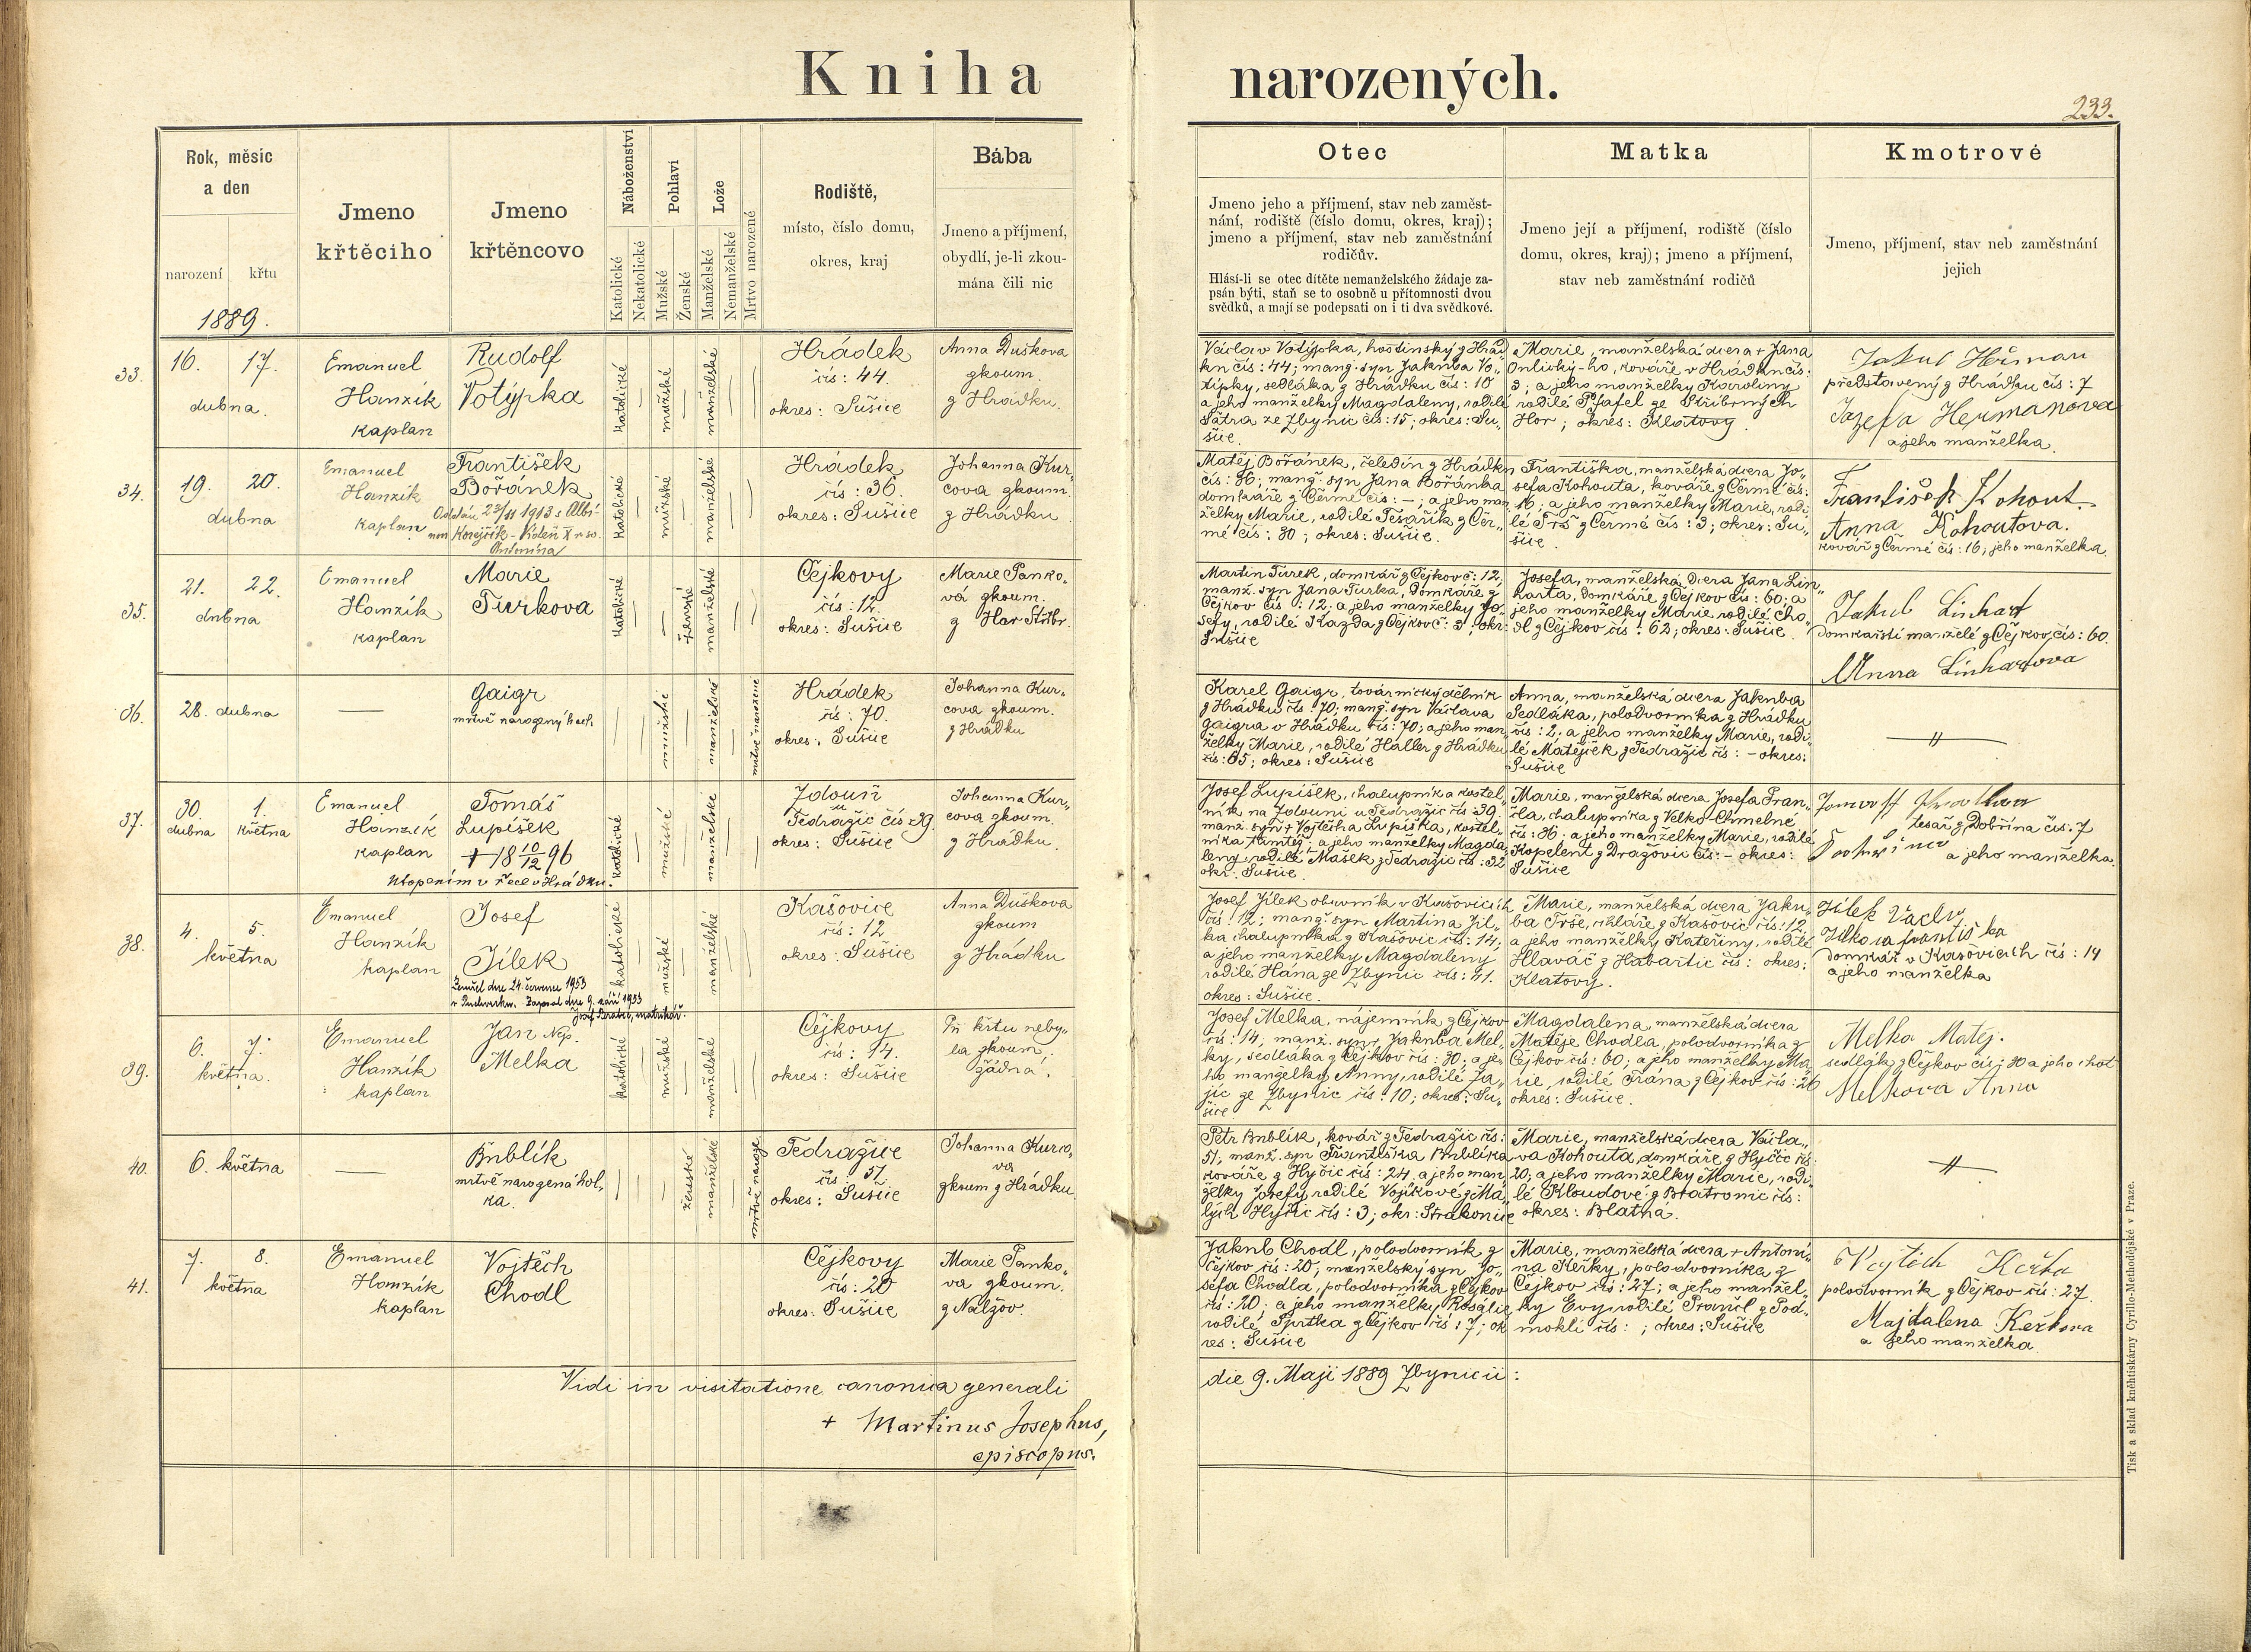 Kniha narozených.
233.
Rok, měsíc
a den
narození
křtu
1889.
Jmeno
křtěcího
Jmeno
křtěncovo
Náboženství
Katolické
Nekatolické
Pohlaví
Mužské
Ženské
Lože
Manželské
Nemanželské
Mrtvo narozené
Rodiště,
místo, číslo domu,
okres, kraj
Bába
Jmeno a příjmení,
obydlí, je-li zkou-
mána čili nic
Otec
Jmeno jeho a příjmení, stav neb zaměst-
nání, rodiště (číslo domu, okres, kraj);
jmeno a příjmení, stav neb zaměstnání
rodičův.
Hlásí-li se otec dítěte nemanželského žádaje za-
psán býti, staň se to osobně u přítomnosti dvou
svědků, a mají se podepsati on i ti dva svědkové.
Matka
Jmeno její a příjmení, rodiště (číslo
domu, okres, kraj); jmeno a příjmení,
stav neb zaměstnání rodičů
Kmotrové
Jmeno, příjmení, stav neb zaměstnání
jejich
33.
16. 17.
dubna.
Emanuel
Hanzík
kaplan
Rudolf
Votýpka
katolické
mužské
manželské
Hrádek
čís: 44.
okres: Sušice
Anna Duškova
zkoum.
z Hrádku.
Václav Votýpka, hostinský z Hrád
ku čís: 44; manž. syn Jakuba Vo„
típky, sedláka z Hrádku čís: 10
a jeho manželky Magdaleny, rodilé
Šatra ze Zbynic čís: 15; okres: Su„
šice.
Marie, manželská dcera + Jana
kováře v Hrádku čís:
3; a jeho manželky Karoliny
rodilé Pfafel ze Stříbrných
Hor; okres: Klatovy.
Jakub Heřman
představený z Hrádku čís: 7
Jozefa Heřmanova
a jeho manželka.
34.
19. 20.
dubna
Emanuel
Hanzík
kaplan
František
Bořánek
katolické
mužské
manželské
Hrádek
čís: 36.
okres: Sušice
Johanna Kur„
cova zkoum.
z Hrádku
Matěj Bořánek, čeledín z Hrádku
čís: 36; manž. syn Jana Bořánka
domkáře z Čermé čís: –; a jeho man„
želky Marie, rodilé Tesařík z Čer„
mé čís: 30; okres: Sušice.
Františka, manželská dcera Jo„
sefa Kohouta, kováře z Čermé čís:
16; a jeho manželky Marie, rodi„
lé Trš z Čermé čís: 3; okres: Su„
šice.
František Kohout.
a
Anna Kohoutova.
kovář z Čermé čís: 16; jeho manželka.
35.
21. 22.
dubna
Emanuel
Hanzík
kaplan
Marie
Turkova
katolické
ženské
manželské
Čejkovy
čís: 12.
okres: Sušice
Marie Panko„
vá zkoum.
z Hor Stříbr.
Martin Turek, domkář z Čejkov č: 12;
manž. syn Jana Turka, domkáře z
Čejkov čís: 12; a jeho manželky Jo„
sefy, rodilé Kazda z Čejkov č: 3; okr:
Sušice
Josefa, manželská dcera Jana Lin„
harta, domkáře z Čejkov čís: 60; a
jeho manželky Marie, rodilé Cho„
dl z Čejkov čís: 62; okres: Sušice.
Jakub Linhart
domkářští manželé z Čejkov, čís: 60.
Anna Linhartova
36.
28. dubna
Gaigr
mrtvě narozený hoch.
mužské
manželské
mrtvě narozené
Hrádek
čís: 70.
okres: Sušice
Johanna Kur„
cova zkoum.
z Hrádku
Karel Gaigr, továrnický dělník
z Hrádku čís: 70; manž. syn Václava
Gaigra v Hrádku čís: 70; a jeho man„
želky Marie, rodilé Haller z Hrádku
čís: 65; okres: Sušice
Anna, manželská dcera Jakuba
Sedláka, polodvorníka z Hrádku
čís: 2; a jeho manželky Marie, rodi„
lé Matějček z Tedražic čís: – okres:
Sušice
37.
30. 1.
dubna května
Emanuel
Hanzík
kaplan
Tomáš
Lupíšek
+ 18 10/12 96
Utopením v řece v Hrádku.
katolické
mužské
manželské
Zdouň
u
Tedražic čís 39.
okres: Sušice
Johanna Kur„
cova zkoum.
z Hrádku.
Josef Lupíšek, chalupník a kostel„
ník na Zdouni u Tedražic čís 39.
manž. syn + Vojtěcha Lupíška, kostel„
níka tamtéž; a jeho manželky Magda„
leny, rodilé Mašek z Tedražic čís: 32
okr. Sušice.
Marie, manželská dcera Josefa Fran„
cla, chalupníka z Velko-Chmelné
čís: 36. a jeho manželky Marie, rodilé
Kopelent z Dražovic čís: – okres:
Sušice
tesař z Dobřína čís: 7
a jeho manželka.
38.
4. 5.
května
Emanuel
Hanzík
kaplan
Josef
Jílek
Zemřel dne 24. června 1953
Zapsal dne 9. září 1953
matrikář.
katolické
mužské
manželské
Kašovice
čís: 12
okres: Sušice
Anna Duškova
zkoum
z Hrádku
Josef Jílek obuvník v Kašovicích
čís: 12; manž. syn Martina Jíl„
ka chalupníka z Kašovic čís: 14;
a jeho manželky Magdaleny
rodilé Hána ze Zbynic čís: 41.
okres: Sušice.
Marie, manželská dcera Jaku„
ba Trše, cihláře z Kašovic čís: 12,
a jeho manželky Kateřiny, rodilé
Hlaváč z Habartic čís: okres:
Klatovy.
Jílek Václav
Jilkova františka
domkář v Kašovicích čís: 14
a jeho manželka
39.
6. 7.
května.
Emanuel
Hanzík
kaplan
Jan Nep.
Melka
katolické
mužské
manželské
Čejkovy
čís: 14.
okres: Sušice
Při křtu neby„
la zkoum.
žádna.
Josef Melka, nájemník z Čejkov
čís: 14; manž. syn + Jakuba Mel„
ky, sedláka z Čejkov čís: 30; a je„
ho manželky Anny, rodilé Ja„
jíc ze Zbynic čís: 10; okres: Su„
šice
Magdalena, manželská dcera
Matěje Chodla, polodvorníka z
Čejkov čís: 60; a jeho manželky Ma„
rie, rodilé Frána z Čejkov čís: 26
okres: Sušice.
Melka Matěj.
sedlák z Čejkov čís: 30 a jeho choť
Melkova Anna
40.
6. května
Bublík
mrtvě narozená hol„
ka.
ženské
manželské
Tedražice
čís: 51
okres: Sušice
Johanna Kurco„
va
zkoum z Hrádku.
Petr Bublík, kovář z Tedražic čís:
51; manž. syn Františka Bublíka
kováře z Hyčic čís: 24, a jeho man„
želky Josefy rodilé Vojíkové z Ma„
lých Hyčic čís: 3; okr: Strakonice
Marie, manželská dcera Václa„
va Kohouta, domkáře z Hyčic čís:
20; a jeho manželky Marie, rodi„
lé Kloudové z Bratronic čís:
okres: Blatná.
41.
7. 8.
května
Emanuel
Hanzík
kaplan
Vojtěch
Chodl
Čejkovy
čís: 20
okres: Sušice
Marie Panko„
va zkoum.
z Nalžov.
Jakub Chodl, polodvorník z
Čejkov čís: 20; manželský syn Jo„
sefa Chodla, polodvorníka z Čejkov
čís: 20; a jeho manželky Rosalie
rodilé Šprtka z Čejkov čís: 7; ok
res: Sušice
Marie, manželská dcera + Antoní„
na Keřky, polodvorníka z
Čejkov čís: 27; a jeho manžel„
ky Evy rodilé Prančl z Pod„
moklí čís: ; okres: Sušice
Vojtěch Keřka
polodvorník z Čejkov čís: 27.
Majdalena Keřkova
a jeho manželka.
Vidi in visitatione canonica generali die 9. Maji 1889 Zbynicii:
+ Martinus Josephus,
episcopus.
Tisk a sklad kněhtiskárny Cyrillo-Methodějské v Praze.